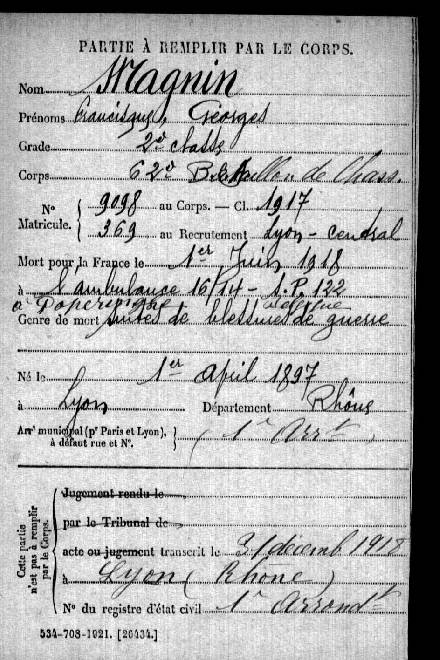 PARTIE À REMPLIR PAR LE CORPS.
Nom Magnin
Prénoms Francisque, Georges
Grade 2e classe
Corps 62e Bataillon de Chass.
No Matricule. 9098 au Corps. — Cl. 1917
369 au Recrutement Lyon - central
Mort pour la France le 1er Juin 1918
à l'ambulance 16/14 - S.P. 122
à Belgique
Genre de mort suites de blessures de guerre
Né le 1er April 1897
à Lyon Département Rhône
Arrt municipal (pr Paris et Lyon), à défaut rue et No. (1r Arrt)
Cette partie n'est pas à remplir par le Corps.
Jugement rendu le
par le Tribunal de
acte ou jugement transcrit le 31 décemb 1918
à Lyon (Rhône)
No du registre d'état civil 1r Arrondt
534-708-1921. [26434.]